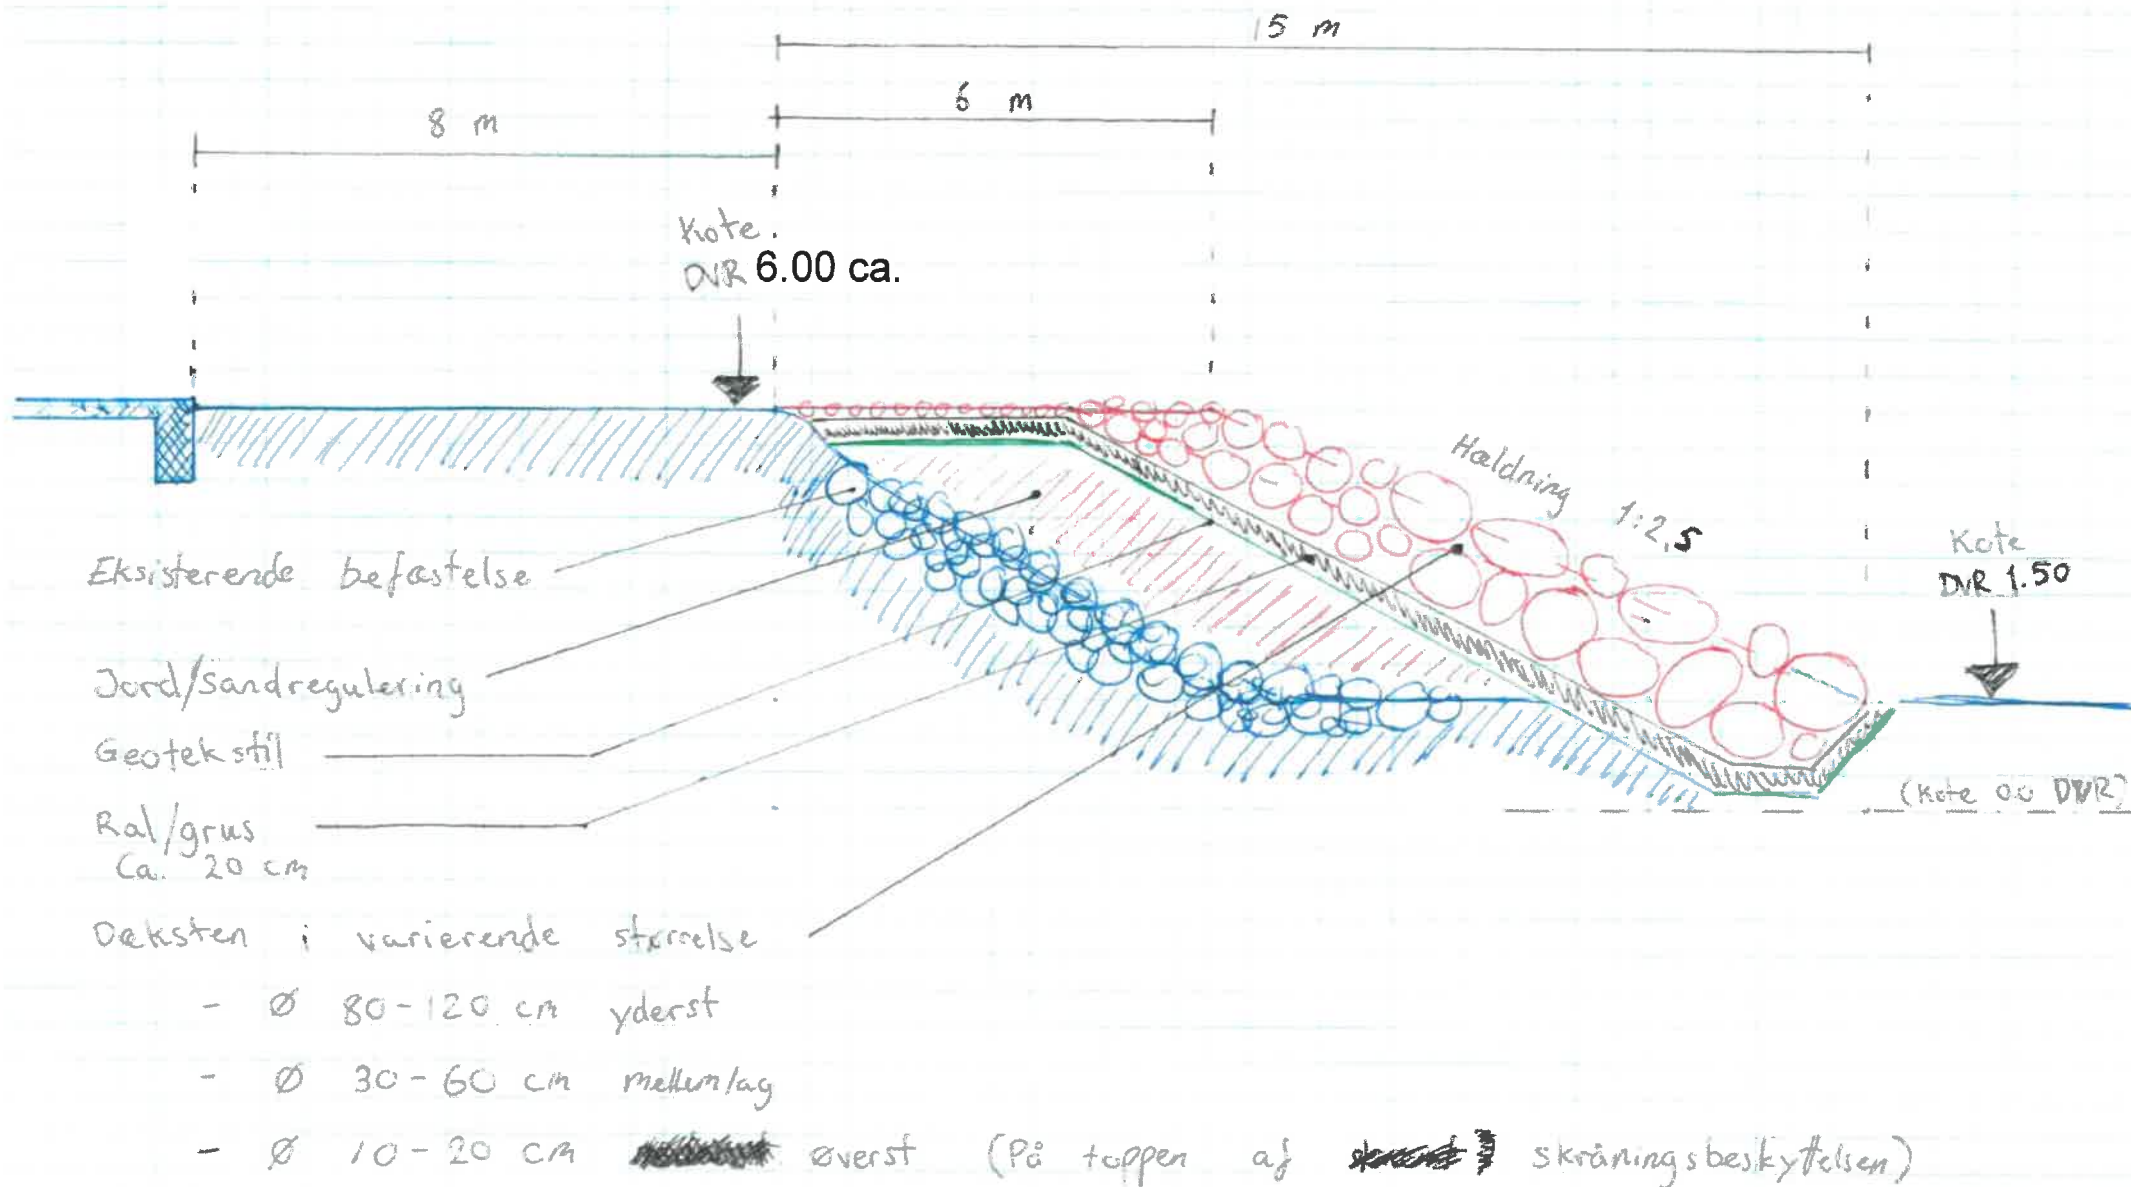 15 m
6 m
8 m
Kote
DVR 6.00 ca.
Hældning 1:2,5
Kote
DVR 1.50
Eksisterende befæstelse
Jord/Sandregulering
Geotekstil
Ral/grus
Ca. 20 cm
(Kote 0.0 DVR)
Dæksten i varierende størrelse
- Ø 80-120 cm yderst
- Ø 30-60 cm mellemlag
- Ø 10-20 cm øverst (På toppen af skråningsbeskyttelsen)